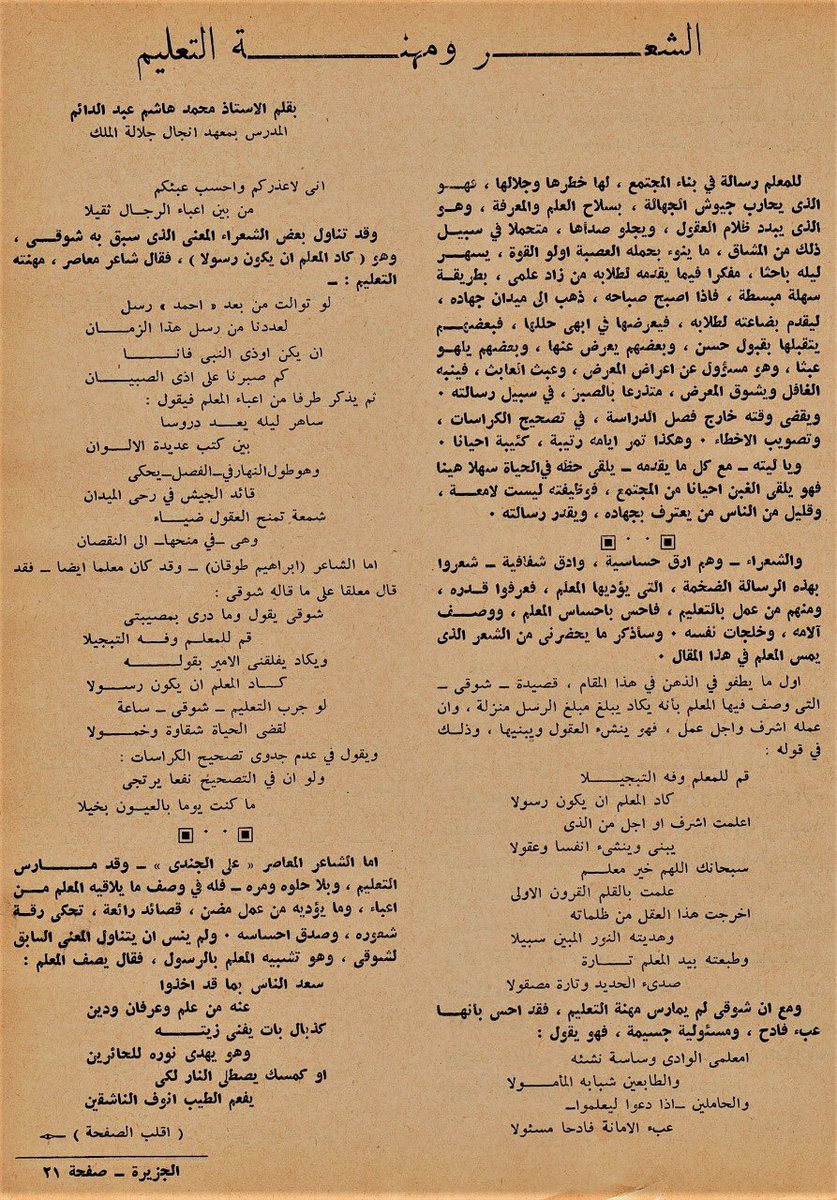 الشعر ومهنة التعليم
بقلم الاستاذ محمد هاشم عبد الدائم
المدرس بمعهد انجال جلالة الملك
للمعلم رسالة في بناء المجتمع ، لها خطرها وجلالها ، فهو
الذى يحارب جيوش الجهالة ، بسلاح العلم والمعرفة ، وهو
الذى يبدد ظلام العقول ، ويجلو صدأها ، متحملا في سبيل
ذلك من المشاق ، ما ينوء بحمله العصبة اولو القوة ، يسهر
ليله باحثا ، مفكرا فيما يقدمه لطلابه من زاد علمى ، بطريقة
سهلة مبسطة ، فاذا اصبح صباحه ، ذهب الى ميدان جهاده ،
ليقدم بضاعته لطلابه ، فيعرضها في ابهى حللها ، فبعضهم
يتقبلها بقبول حسن ، وبعضهم يعرض عنها ، وبعضهم يلهو
عبثا ، وهو مسؤول عن اعراض المعرض ، وعبث العابث ، فينبه
الغافل ويشوق المعرض ، متذرعا بالصبر ، في سبيل رسالته ٠
ويقضى وقته خارج فصل الدراسة ، في تصحيح الكراسات ،
وتصويب الاخطاء ٠ وهكذا تمر ايامه رتيبة ، كئيبة احيانا ٠
ويا ليته ـ مع كل ما يقدمه ـ يلقى حظه في الحياة سهلا هينا
فهو يلقى الغبن احيانا من المجتمع ، فوظيفته ليست لامعة ،
وقليل من الناس من يعترف بجهاده ، ويقدر رسالته ٠
والشعراء ـ وهم ارق حساسية ، وادق شفافية ـ شعروا
بهذه الرسالة الضخمة ، التى يؤديها المعلم ، فعرفوا قدره ،
ومنهم من عمل بالتعليم ، فاحس باحساس المعلم ، ووصف
آلامه ، وخلجات نفسه ٠ وسأذكر ما يحضرنى من الشعر الذى
يمس المعلم في هذا المقال ٠
اول ما يطفو في الذهن في هذا المقام ، قصيدة ـ شوقى ـ
التى وصف فيها المعلم بأنه يكاد يبلغ مبلغ الرسل منزلة ، وان
عمله اشرف واجل عمل ، فهو ينشىء العقول ويبنيها ، وذلك
في قوله :
قم للمعلم وفه التبجيلا
كاد المعلم ان يكون رسولا
اعلمت اشرف او اجل من الذى
يبنى وينشىء انفسا وعقولا
سبحانك اللهم خير معلم
علمت بالقلم القرون الاولى
اخرجت هذا العقل من ظلماته
وهديته النور المبين سبيلا
وطبعته بيد المعلم تارة
صدىء الحديد وتارة مصقولا
ومع ان شوقى لم يمارس مهنة التعليم ، فقد احس بانها
عبء فادح ، ومسئولية جسيمة ، فهو يقول :
امعلمى الوادى وساسة نشئه
والطابعين شبابه المأمولا
والحاملين ـاذا دعوا ليعلمواـ
عبء الامانة فادحا مسئولا
انى لاعذركم واحسب عبئكم
من بين اعباء الرجال ثقيلا
وقد تناول بعض الشعراء المعنى الذى سبق به شوقى ،
وهو ( كاد المعلم ان يكون رسولا ) ، فقال شاعر معاصر ، مهنته
التعليم : ـ
لو توالت من بعد « احمد » رسل
لعددنا من رسل هذا الزمان
ان يكن اوذى النبى فانا
كم صبرنا على اذى الصبيان
ثم يذكر طرفا من اعباء المعلم فيقول :
ساهر ليله يعد دروسا
بين كتب عديدة الالوان
وهو طول النهار في ـ الفصل ـ يحكى
قائد الجيش في رحى الميدان
شمعة تمنح العقول ضياء
وهى ـ في منحها ـ الى النقصان
اما الشاعر (ابراهيم طوقان) ـ وقد كان معلما ايضا ـ فقد
قال معلقا على ما قاله شوقى :
شوقى يقول وما درى بمصيبتى
قم للمعلم وفه التبجيلا
ويكاد يفلقنى الامير بقوله
كاد المعلم ان يكون رسولا
لو جرب التعليم ـ شوقى ـ ساعة
لقضى الحياة شقاوة وخمولا
ويقول في عدم جدوى تصحيح الكراسات :
ولو ان في التصحيح نفعا يرتجى
ما كنت يوما بالعيون بخيلا
اما الشاعر المعاصر « على الجندى » ـ وقد مارس
التعليم ، وبلا حلوه ومره ـ فله في وصف ما يلاقيه المعلم من
اعباء ، وما يؤديه من عمل مضن ، قصائد رائعة ، تحكى رقة
شعوره ، وصدق احساسه ٠ ولم ينس ان يتناول المعنى السابق
لشوقى ، وهو تشبيه المعلم بالرسول ، فقال يصف المعلم :
سعد الناس بما قد اخذوا
عنه من علم وعرفان ودين
كذبال بات يفنى زيته
وهو يهدى نوره للحائرين
او كمسك يصطلى النار لكى
يفعم الطيب انوف الناشقين
( اقلب الصفحة )
الجزيرة ـ صفحة ٢١